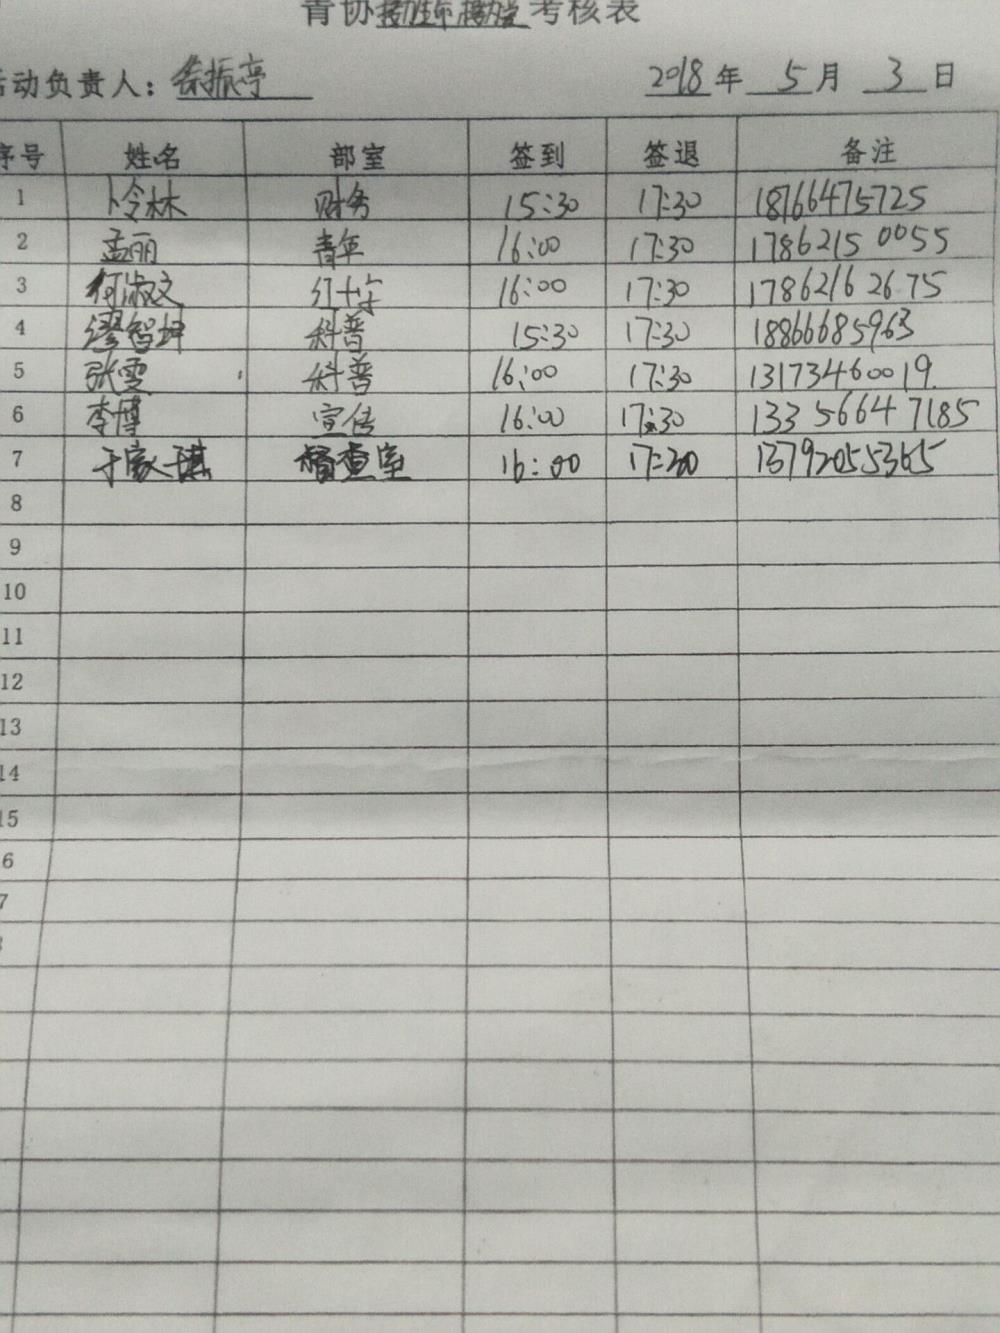 青协 考核表
活动负责人：徐振亭 2018年 5月 3日
序号 姓名 部室 签到 签退 备注
1 卜令林 财务 15:30 17:30 18766475725
2 孟丽 青年 16:00 17:30 17862150055
3 何淑文 红十字 16:00 17:30 17862162675
4 缪智坤 科普 15:30 17:30 18866685963
5 张雯 科普 16:00 17:30 13173460019.
6 李博 宣传 16:00 17:30 13356647185
7 于家琪 督查室 16:00 17:30 13792055365
8
9
10
11
12
13
14
15
6
7